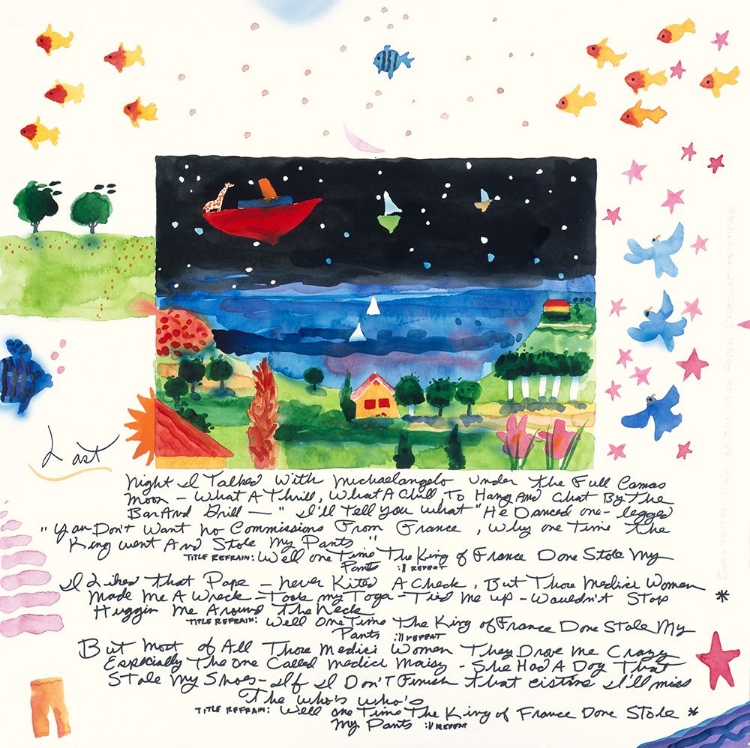 Last
Night I Talked With Michaelangelo Under The Full Camas
Moon - What A Thrill, What A Chill, To Hang And Chat By The
Bar And Grill — " I'll Tell You What "He Danced one-legged
"You Don't Want No Commissions From France, Why one Time The
King Went And Stole My Pants"
TITLE REFRAIN: Well one Time The King of France Done Stole My
Pants :// REPEAT
I Liked That Pope - never Kited A Check, But Those Medici Women
Made Me A Wreck - Took my Toga - Tied Me up - Wouldn't Stop *
Huggin Me Around The Neck
TITLE REFRAIN: Well One Time The King of France Done Stole My
Pants :// REPEAT
But Most of All Those Medici Women They Drove Me Crazy
Especially The one Called Medici Maisy - She Had A Dog That
Stole My Shoes - If I Don't Finish That I'll miss
The Who's Who's
TITLE REFRAIN: Well one Time The King of France Done Stole *
My Pants :// REPEAT